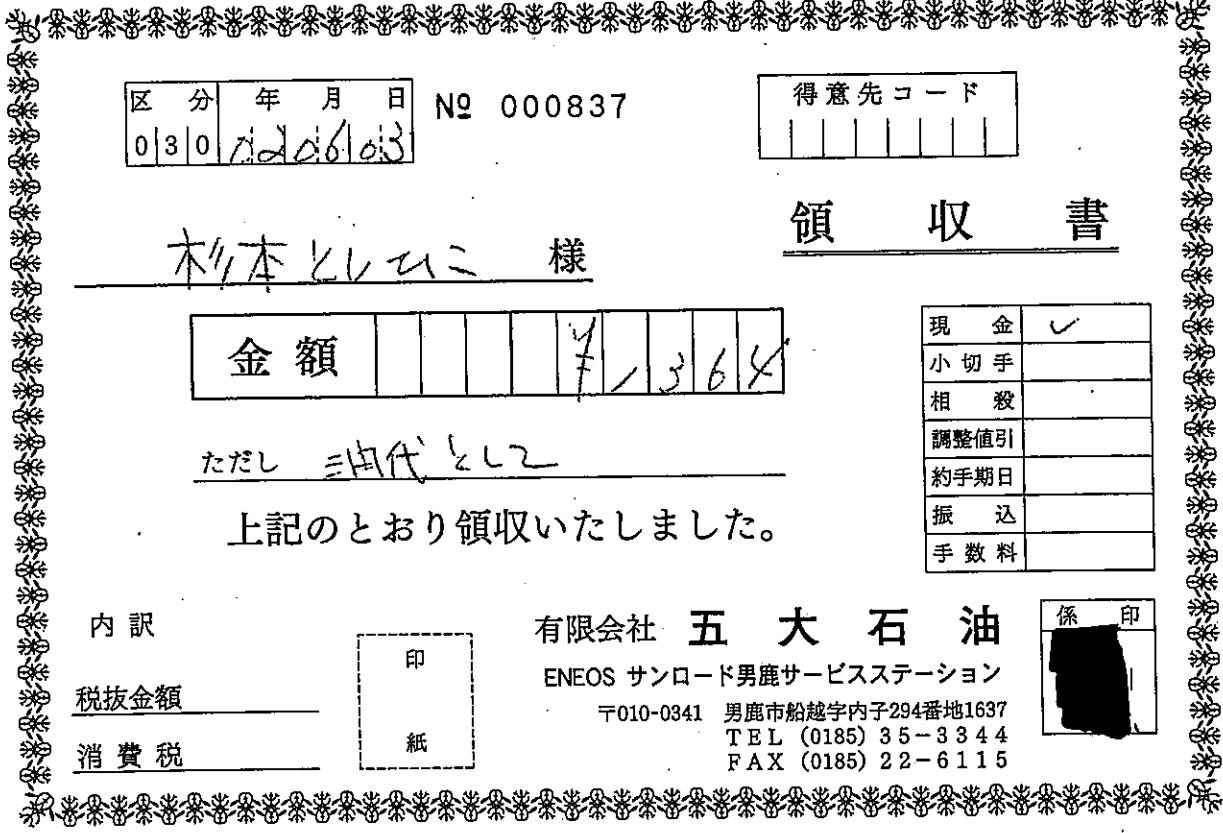 区分 年 月 日
030 020603
№ 000837
得意先コード
領収書
杉本としひこ 様
金額 ¥1364
ただし 油代として
上記のとおり領収いたしました。
現金 ✓
小切手
相殺
調整値引
約手期日
振込
手数料
内訳
税抜金額
消費税
印紙
有限会社 五大石油
ENEOS サンロード男鹿サービスステーション
〒010-0341 男鹿市船越字内子294番地1637
TEL (0185) 35-3344
FAX (0185) 22-6115
係印